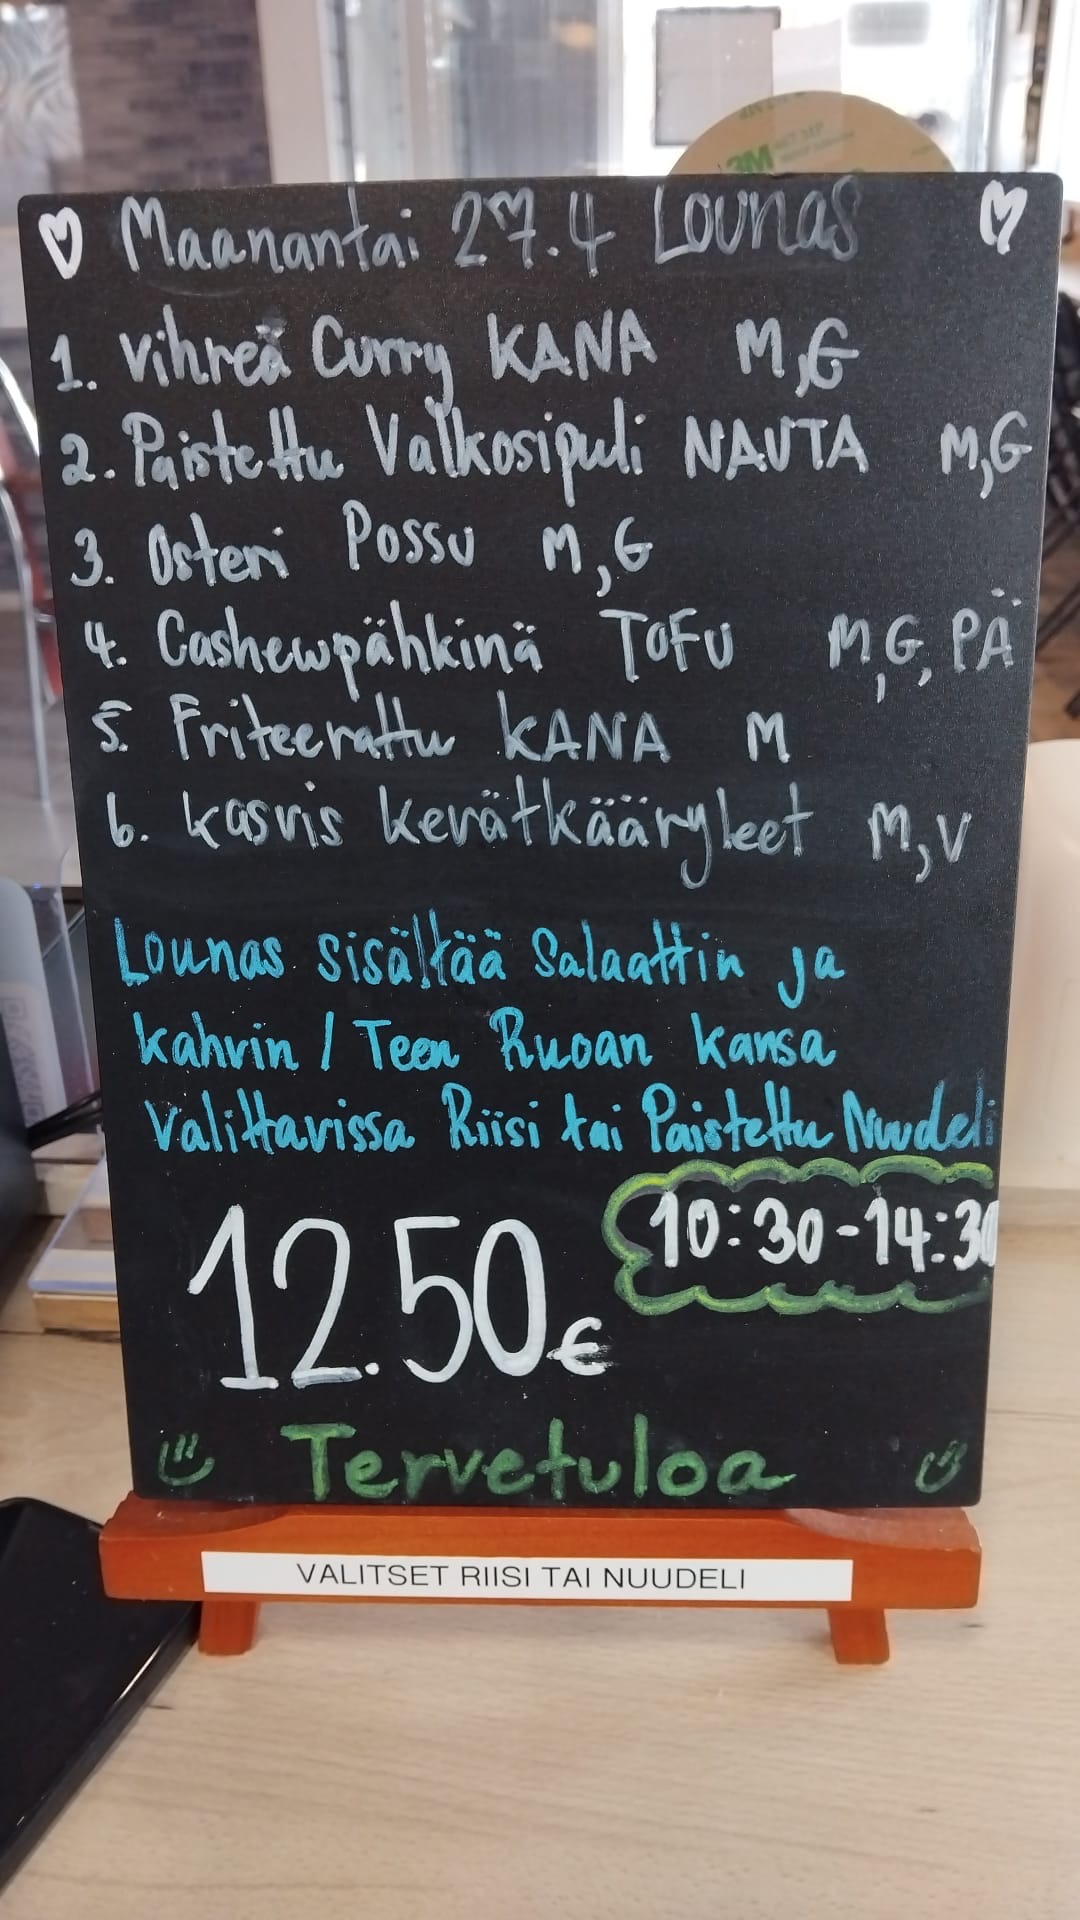 Maanantai 27.4 Lounas
1. Vihreä Curry KANA M,G
2. Paistettu Valkosipuli NAUTA M,G
3. Osteri Possu M,G
4. Cashewpähkinä TOFU M,G,PÄ
5. Friteerattu KANA M
6. kasvis kevätkääryleet M,V
Lounas sisältää Salaattin ja
kahvin / Teen Ruoan kansa
Valittavissa Riisi tai Paistettu Nuudeli
10:30-14:30
12.50€
Tervetuloa
VALITSET RIISI TAI NUUDELI
3M